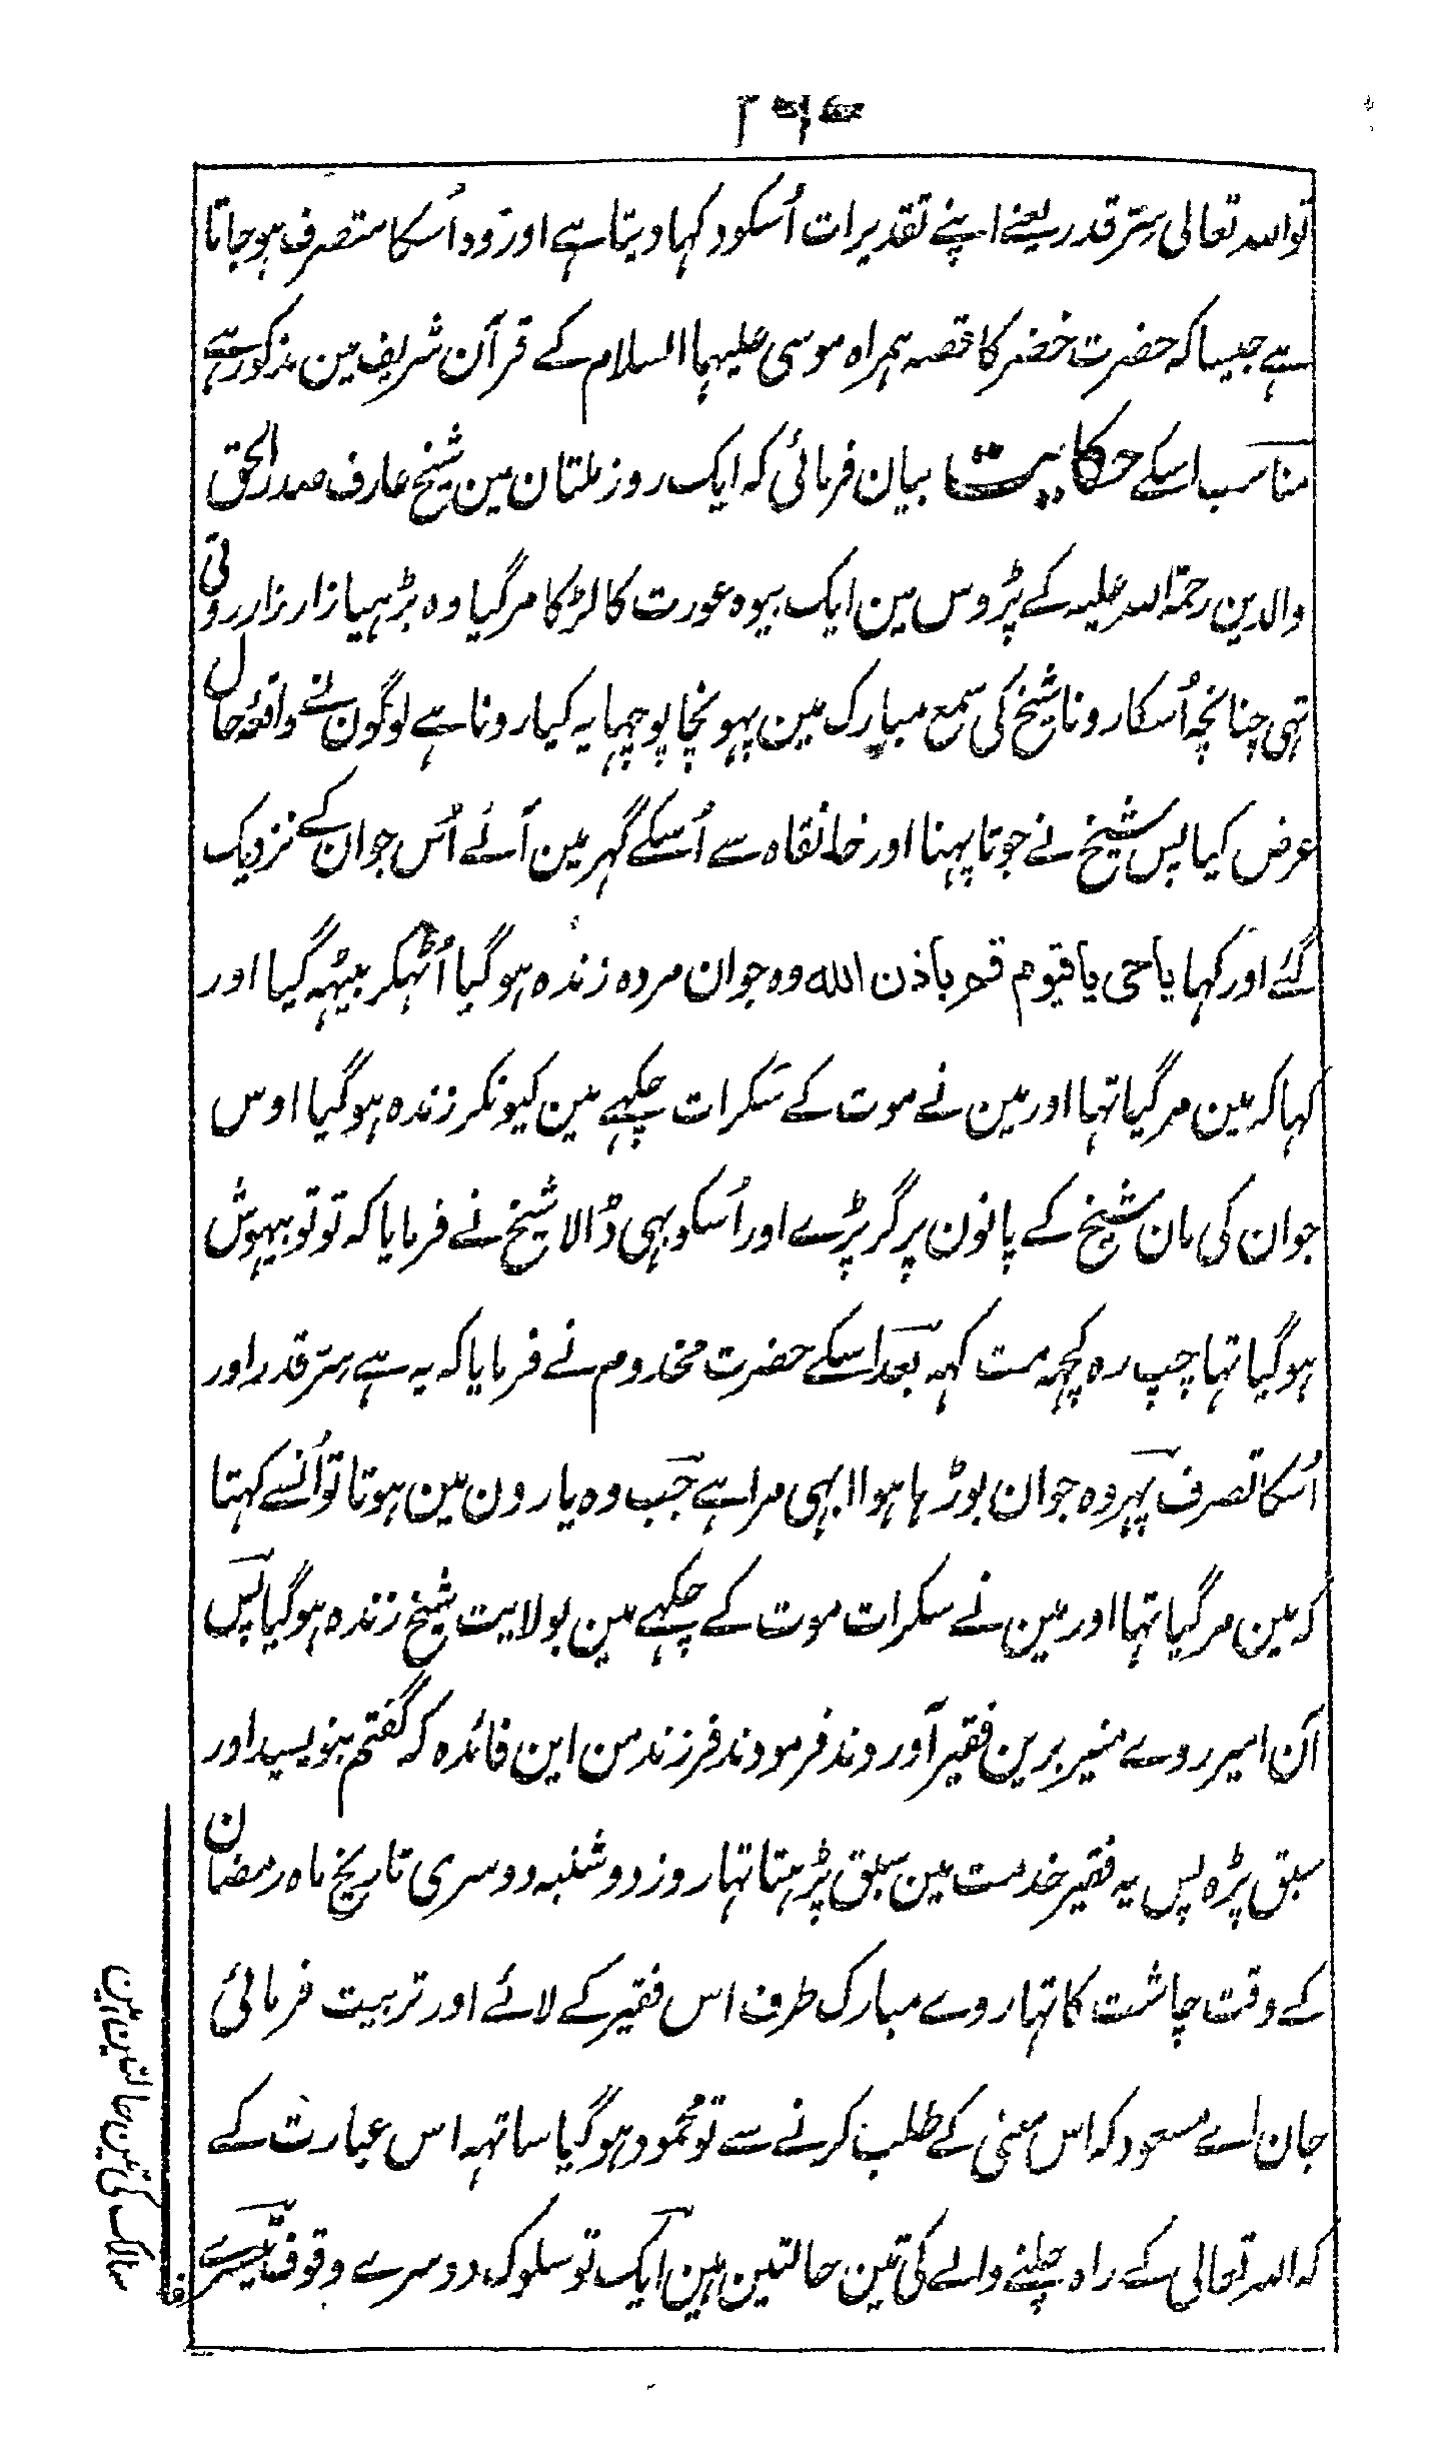 تو اللہ تعالی سِرّ قدر یعنے اپنے تقدیرات اُسکو دکہا دیتا ہے اور وہ اُسکا متصرف ہو جاتا
ہے جیسا کہ حضرت خضر کا قصہ ہمراہ موسی علیہما السلام کے قرآن شریف مین مذکور ہے
مناسب اسکے حکایت بیان فرمائی کہ ایک روز ملتان مین شیخ عارف صدر الحق
والدین رحمۃ اللہ علیہ کے پڑوس مین ایک بیوہ عورت کا لڑکا مر گیا وہ بڑہیا زار زار روتی
تہی چنانچہ اُسکا رونا شیخ کی سمع مبارک مین پہونچا پوچہا یہ کیا رونا ہے لوگون نے واقعۂ حال
عرض کیا پس شیخ نے جوتا پہنا اور خانقاہ سے اُسکے گہر مین آئے اُس جوان کے نزدیک
گئے اور کہا یا حی یا قیوم قم باذن الله وہ جوان مردہ زندہ ہو گیا اُٹہکر بیٹہہ گیا اور
کہا کہ مین مر گیا تہا اور مین نے موت کے سکرات چکہے مین کیونکر زندہ ہو گیا اوس
جوان کی مان شیخ کے پانون پر گر پڑے اور اُسکو بہی ڈالا شیخ نے فرمایا کہ تو تو بیہوش
ہو گیا تہا چپ رہ کچہہ مت کہہ بعد اسکے حضرت مخدوم نے فرمایا کہ یہ ہے سِرّ قدر اور
اُسکا تصرف پہر وہ جوان بوڑہا ہوا ابہی مرا ہے جب وہ یارون مین ہوتا تو اُنسے کہتا
کہ مین مر گیا تہا اور مین نے سکرات موت کے چکہے مین بولایت شیخ زندہ ہو گیا پس
آن امیر روے منیر برین فقیر آوردند فرمودند فرزند من این فائدہ کہ گفتم بنویسید اور
سبق پڑہ پس یہ فقیر خدمت مین سبق پڑہتا تہا روز دو شنبہ دوسری تاریخ ماہ رمضان
کے وقت چاشت کا تہا روے مبارک طرف اس فقیر کے لائے اور تربیت فرمائی
جان اے مسعود کہ اس معنی کے طلب کرنے سے تو محمود ہو گیا ساتہہ اس عبارت کے
کہ اللہ تعالی کے راہ چلنے والے کی تین حالتین ہین ایک تو سلوک دوسرے وقوف تیسرے
سالک کی تین حالتین ہین